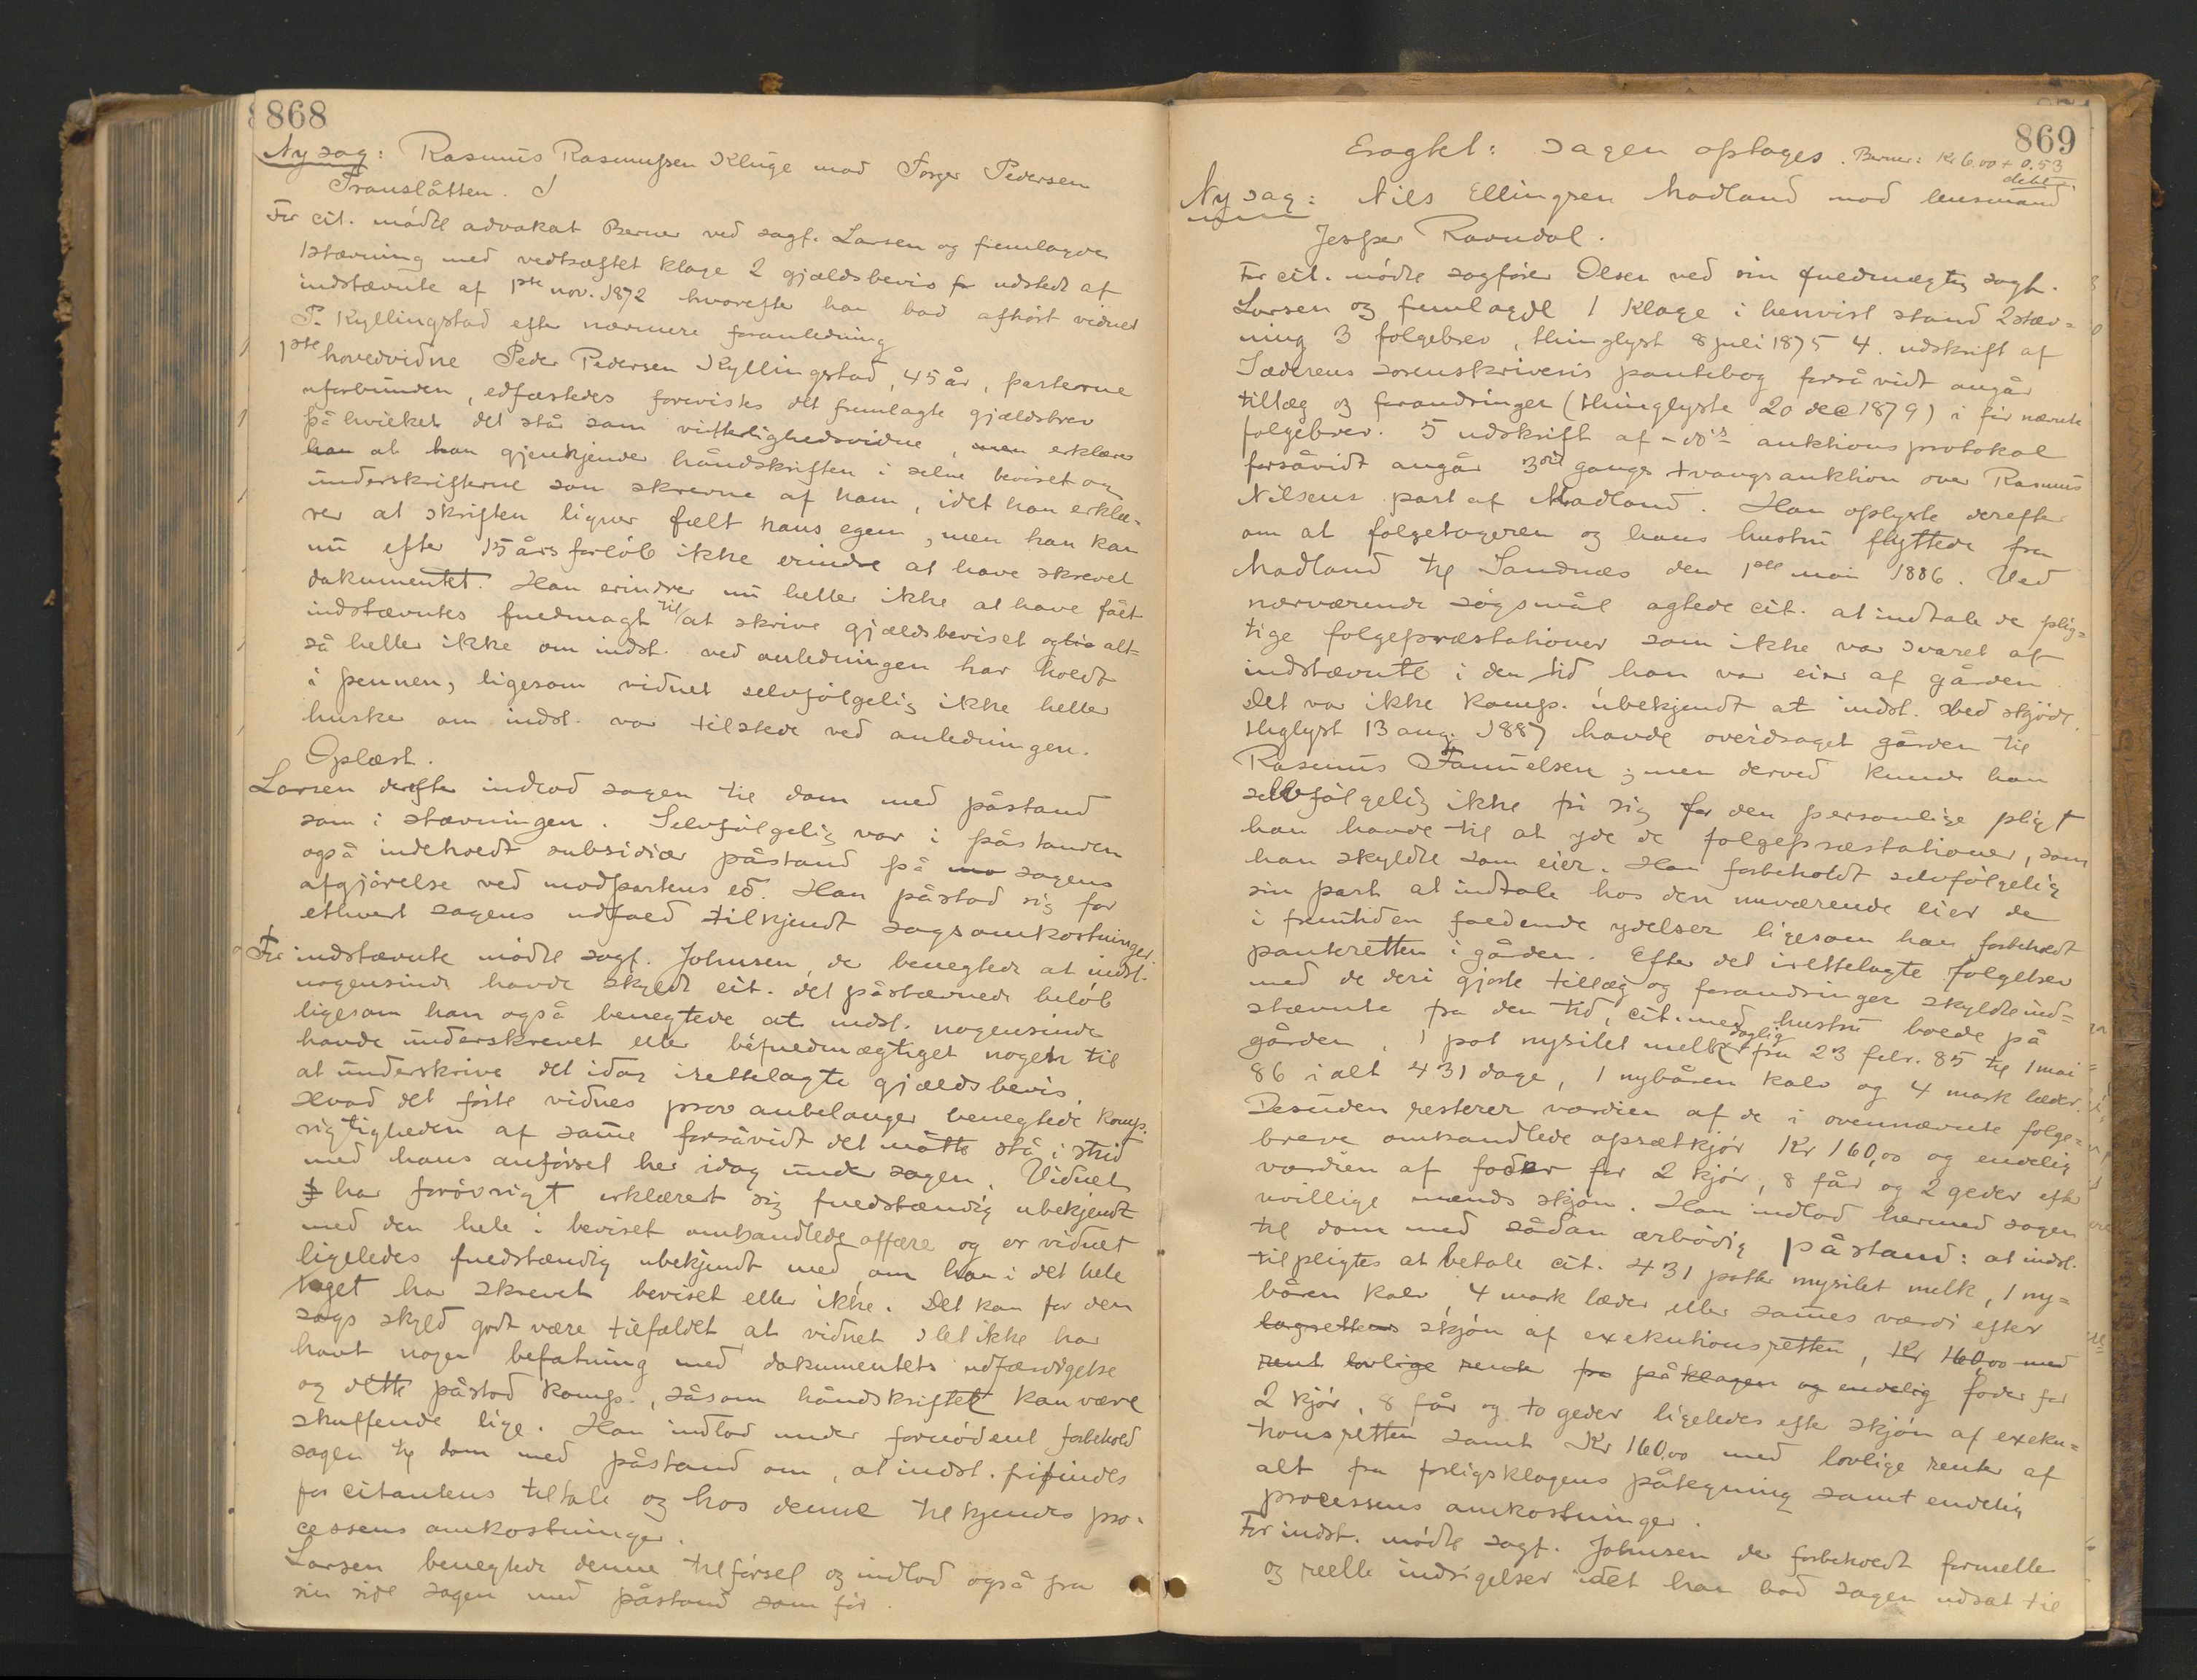 868
Ny sag: Rasmus Rasmussen Kluge mod Torger Pedersen
Translåtten.
For cit. mødte advokat Berner ved sagf. Larsen og fremlagde
1 stævning med vedhæftet klage 2 gjældsbevis udstedt af
indstævnte af 1ste nov. 1872 hvorefter han bad afhørt vidnet
P. Kyllingstad efter nærmere foranledning
1ste hovedvidne Peder Pedersen Kyllingstad, 45 år, parterne
uforbunden, edfæstedes forevistes det fremlagte gjældsbrev
på hvilket det står som vitterlighedsvidne, men erklærer
han at han gjenkjender håndskriften i selve beviset og
underskrifterne som skrevne af ham, idet han erklæ-
rer at skriften ligner fælt hans egen, men han kan
nu efter 15 års forløb ikke erindre at have skrevet
dokumentet. Han erindrer nu heller ikke at have fået
indstævntes fuldmagt til at skrive gjældsbeviset og alt-
så heller ikke om indst. ved anledningen har holdt
i pennen, ligesom vidnet selvfølgelig ikke heller
husker om indst. var tilstede ved anledningen.
Oplæst.
Larsen derefter indlod sagen til dom med påstand
som i stævningen. Selvfølgelig var i påstanden
også indeholdt subsidiær påstand på sagens
afgjørelse ved modpartens ed. Han påstod sig for
ethvert sagens udfald tilkjendt sagsomkostninger.
For indstævnte mødte sagf. Johnsen, der benegtede at indst.
nogensinde havde skyldt cit. det påstævnede beløb
ligesom han også benegtede at indst. nogensinde
havde underskrevet eller befuldmægtiget nogen til
at underskrive det idag irettelagte gjældsbevis.
Hvad det første vidnes prov anbelanger benegtede komp.
rigtigheden af samme forsåvidt det måtte stå i strid
med hans anførsel her idag under sagen. Vidnet
har forøvrigt erklæret sig fuldstændig ubekjendt
med den hele i beviset omhandlede affære og er vidnet
ligeledes fuldstændig ubekjendt med, om han i det hele
taget har skrevet beviset eller ikke. Det kan for den
sags skyld godt være tilfældet at vidnet slet ikke har
havt nogen befatning med dokumentets udfærdigelse
og dette påstod komp., såsom håndskrifter kan være
skuffende lige. Han indlod under fornødent forbehold
sagen til dom med påstand om, at indst. frifindes
for citantens tiltale og hos denne tilkjendes pro-
cessens omkostninger.
Larsen benegtede denne tilførsel og indlod også fra
sin side sagen med påstand som før.
869
Eragtet: Sagen optages. Berner: Kr 6.00 + 0.53
debt.
Ny sag: Nils Ellingsen Madland mod lensmand
Jesper Ravndal.
For cit. mødte sagfører Olsen ved sin fuldmægtig sagf.
Larsen og fremlagde 1 klage i henvist stand 2 stæv-
ning 3 folgebrev, thinglyst 8 juli 1875 4. udskrift af
Jæderens sorenskriveris pantebog forsåvidt angår
tillæg og forandringer (thinglyste 20 dec 1879) i før nævnte
folgebrev. 5 udskrift af -do's- auktionsprotokol
forsåvidt angår 3die gangs tvangsauktion over Rasmus
Nilsens part af Madland. Han oplyste derefter
om at folgetageren og hans hustru flyttede fra
Madland til Sandnæs den 1ste mai 1886. Ved
nærværende søgsmål agtede cit. at indtale de plig-
tige folgepræstationer som ikke var svaret af
indstævnte i den tid han var eier af gården.
Det var ikke komp. ubekjendt at indst. ved skjøde
thglyst 13 aug. 1887 havde overdraget gården til
Rasmus Samuelsen; men derved kunde han
selvfølgelig ikke fri sig for den personlige pligt
han havde til at yde de folgepræstationer, som
han skyldte som eier. Han forbeholdt selvfølgelig
sin part at indtale hos den nuværende eier de
i fremtiden faldende ydelser ligesom han forbeholdt
panteretten i gården. Efter det irettelagte folgebrev
med de deri gjorte tillæg og forandringer skyldte ind-
stævnte fra den tid, cit. med hustru boede på
gården, 1 pot nysilet melk daglig fra 23 febr. 85 til 1 mai
86 ialt 431 dage, 1 nybåren kalv og 4 mark læder.
Desuden resterer værdien af de i ovennævnte folge-
breve omhandlede opsætkjør Kr 160,00 og endelig
værdien af foder for 2 kjør, 8 får og 2 geder efter
uvillige mænds skjøn. Han indlod hermed sagen
til dom med sådan ærbødig påstand: at indst.
tilpligtes at betale cit. 431 potter nysilet melk, 1 ny-
båren kalv, 4 mark læder eller sammes værdi efter
lagrettens skjøn af exekutionsretten, Kr 160,00 med
rent lovlige renter fra påklagen og endelig foder for
2 kjør, 8 får og to geder ligeledes efter skjøn af exeku-
tionsretten samt Kr 160.00 med lovlige renter af
alt fra forligsklagens påtegning samt endelig
processens omkostninger.
For indst. mødte sagf. Johnsen der forbeholdt formelle
og reelle indsigelser idet han bad sagen udsat til